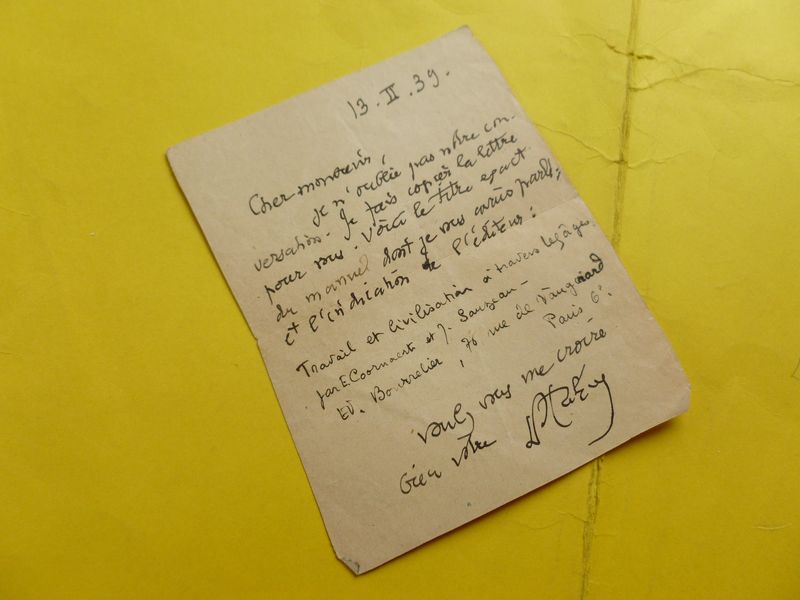 13.II.39.
Cher monsieur,
je n'oublie pas notre con-
versation. Je fais copier la lettre
pour vous. Voici le titre exact
du manuel dont je vous avais parlé,
et l'indication de l'éditeur :
Travail et civilisation à travers les âges
par E. Coornaert et J. Sauzeau —
Ed. Bourrelier, 76 rue de Vaugirard
Paris 6e.
Veuillez vous me croire
bien vôtre